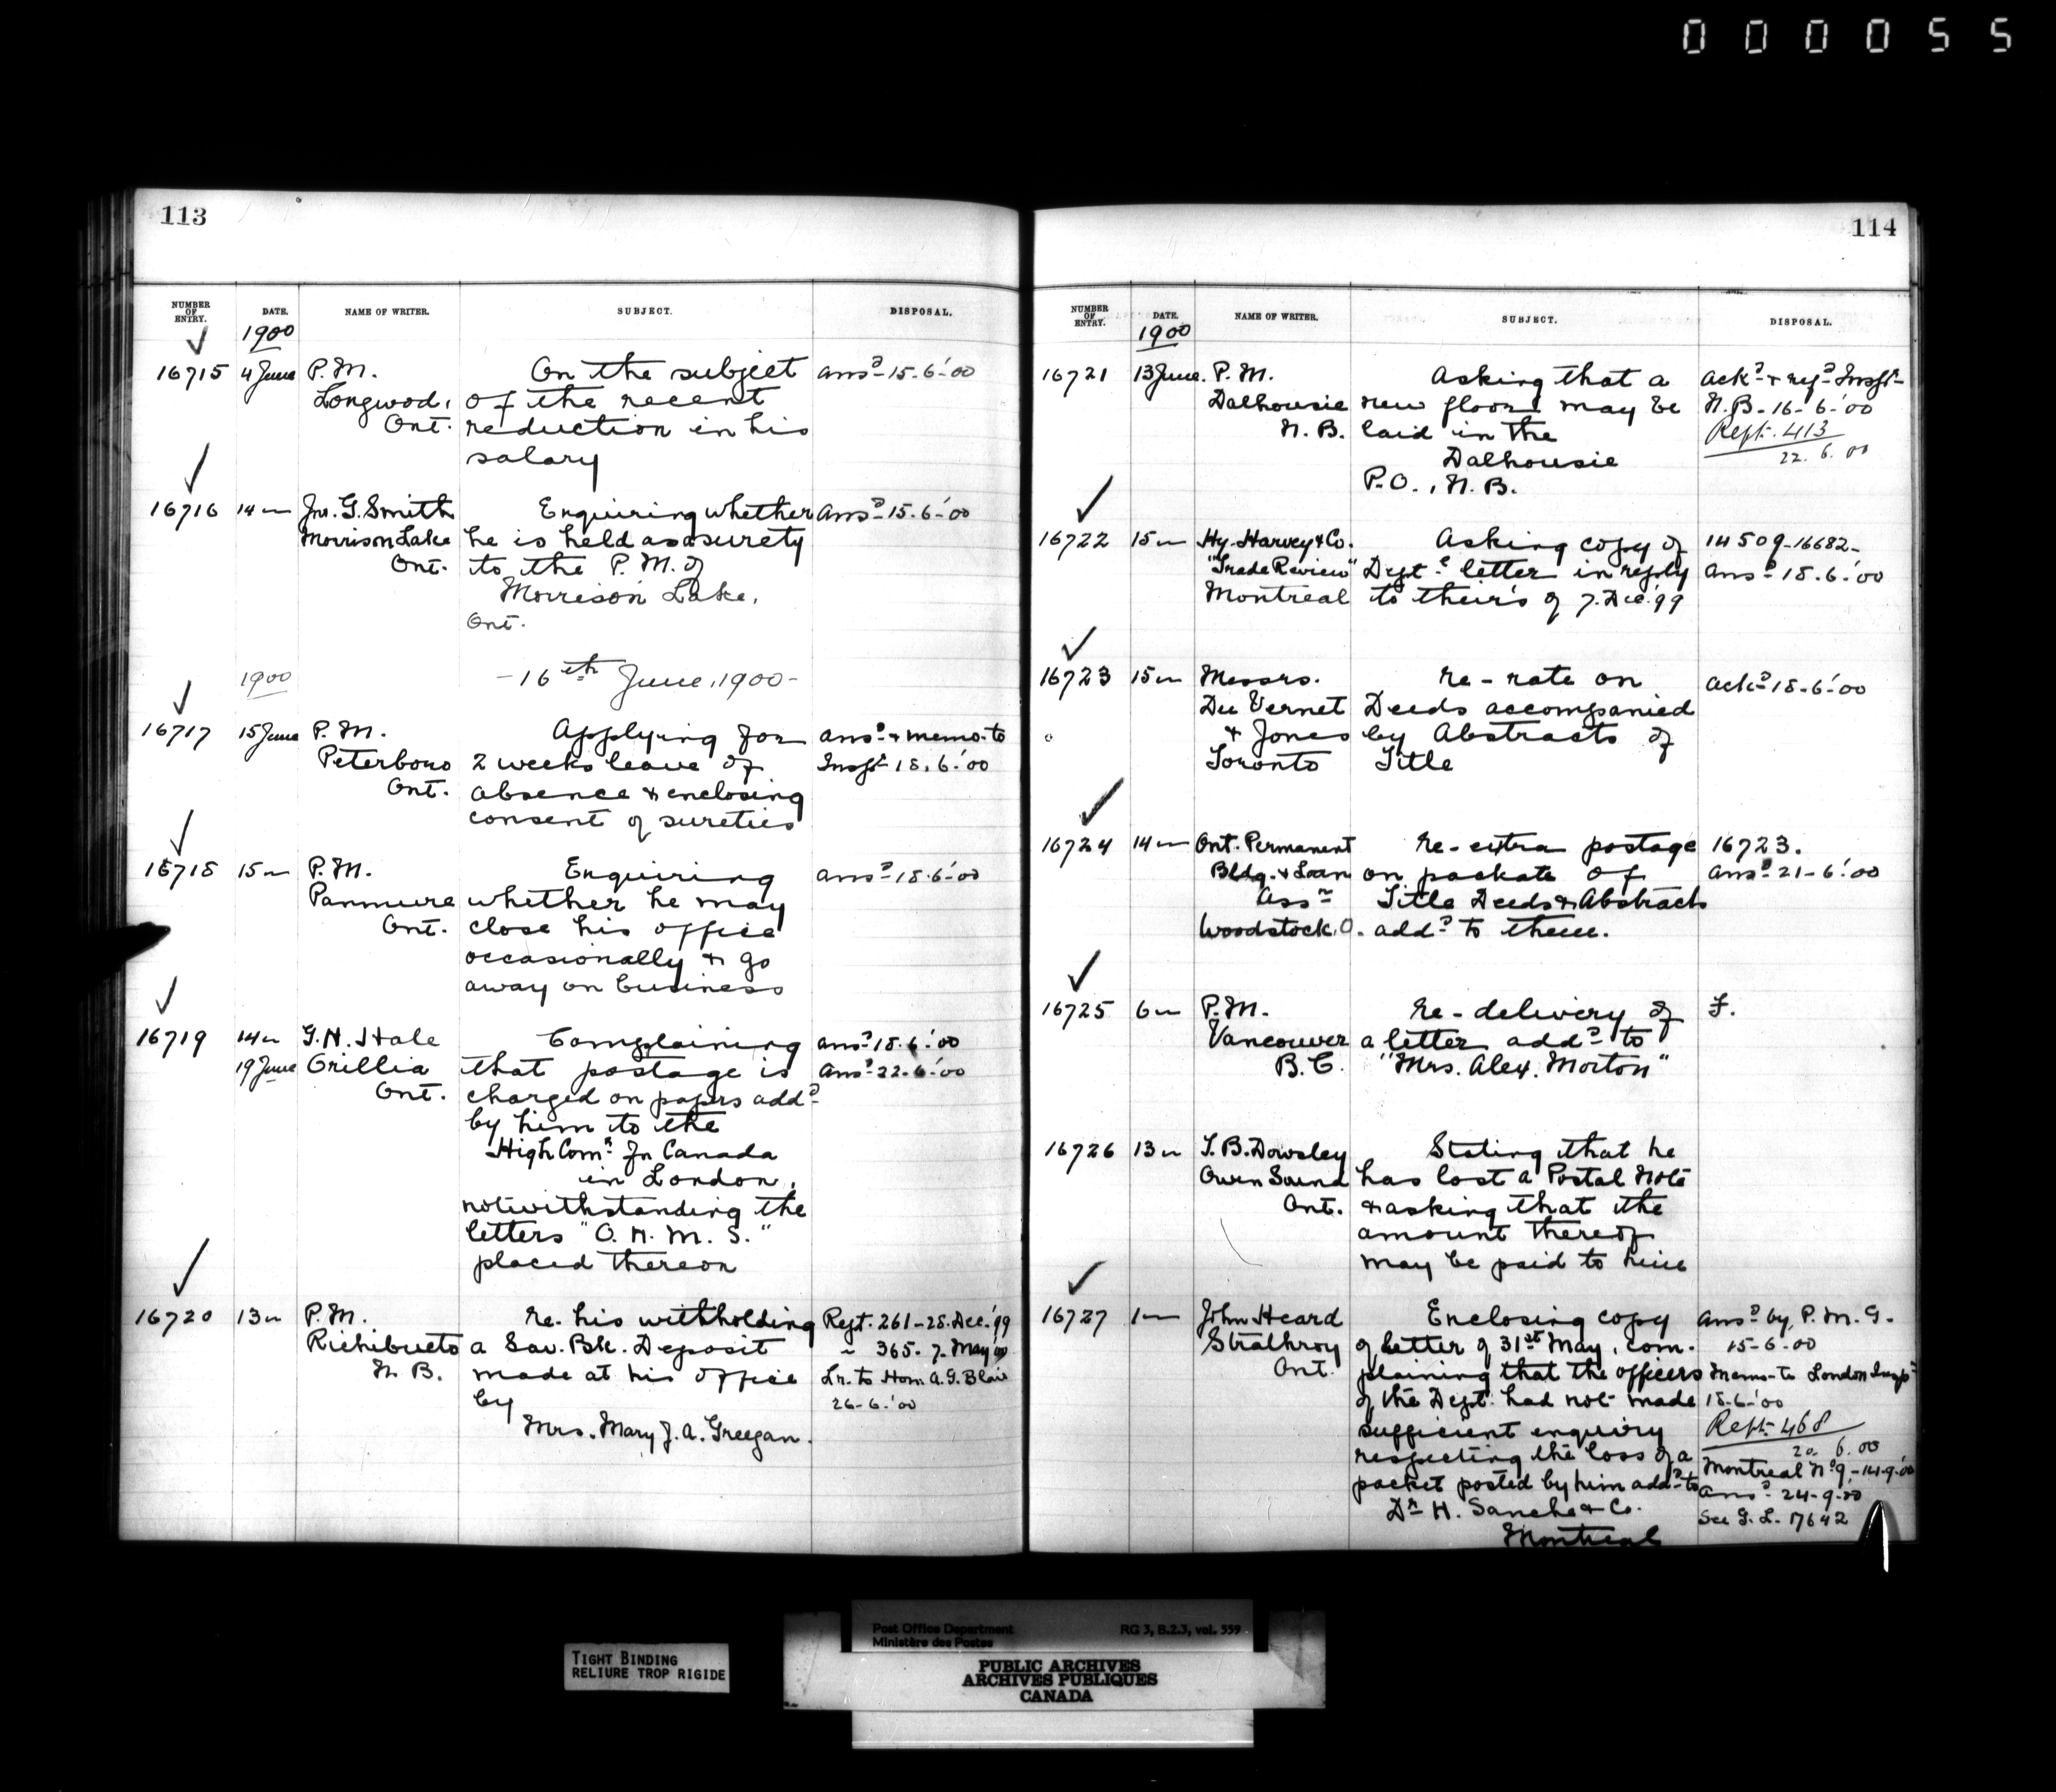 000055
113
NUMBER OF ENTRY. DATE. NAME OF WRITER. SUBJECT. DISPOSAL.
1900
16715 4 June P.M. On the subject ansd 15.6.'00
Longwood, of the recent
Ont. reduction in his
salary
16716 14 " Jno. G. Smith Enquiring whether ansd 15.6.'00
Morrison Lake he is held as a surety
Ont. to the P.M. of
Morrison Lake,
Ont.
1900 -16th June, 1900-
16717 15 June P.M. Applying for ansd & memo. to
Peterboro 2 weeks leave of Inspr 18.6.'00
Ont. absence & enclosing
consent of sureties
16718 15 " P.M. Enquiring ansd 18.6.'00
Panmure whether he may
Ont. close his office
occasionally & go
away on business
16719 14 " G.H. Hale Complaining ansd 18.6.'00
19 June Orillia that postage is ansd 22.6.'00
Ont. charged on papers addd
by him to the
High Comr for Canada
in London,
notwithstanding the
letters "O.H.M.S."
placed thereon
16720 13 " P.M. re. his withholding Rept. 261-28. Dec. '99
Richibucto a Sav. Bk. Deposit " 365. 7. May '00
N.B. made at his office Lr. to Hon. A.G. Blair
by 26-6-'00
Mrs. Mary J.A. Greegan.
114
NUMBER OF ENTRY. DATE. NAME OF WRITER. SUBJECT. DISPOSAL.
1900
16721 13 June. P.M. Asking that a ackd & refd Inspr
Dalhousie new floor may be N.B. 16-6-'00
N.B. laid in the Rept. 413
Dalhousie 22.6.00
P.O., N.B.
16722 15 " Hy. Harvey & Co. Asking copy of 14509-16682-
"Trade Review" Dept.l letter in reply ansd 18.6.'00
Montreal to their's of 7. Dec. 99
16723 15 " Messrs. re-rate on ackd 18-6-'00
Du Vernet Deeds accompanied
& Jones by Abstracts of
Toronto Title
16724 14 " Ont. Permanent re-extra postage 16723.
Bldg. & Loan on packate of ansd 21-6-'00
Assn Title Deeds & Abstracts
Woodstock, O. addd to them.
16725 6 " P.M. re-delivery of F.
Vancouver a letter addd to
B.C. "Mrs. Alex. Morton"
16726 13 " T.B. Dowsley Stating that he
Owen Sound has lost a Postal Note
Ont. & asking that the
amount thereof
may be paid to him
16727 1 " John Heard Enclosing copy ansd by P.M.G.
Strathroy of letter of 31st May, com- 15-6-00
Ont. plaining that the officers Memo-to London Inspr
of the Dept. had not made 18-6-'00
sufficient enquiry Rept. 468
respecting the loss of a 20.6.00
packet posted by him addd to Montreal No 9.-14.9.'00
Dr H. Sanche & Co. ansd 24-9-00
Montreal See G.L. 17642
TIGHT BINDING
RELIURE TROP RIGIDE
Post Office Department RG 3, B.2.3, vol. 559
Ministère des Postes
PUBLIC ARCHIVES
ARCHIVES PUBLIQUES
CANADA